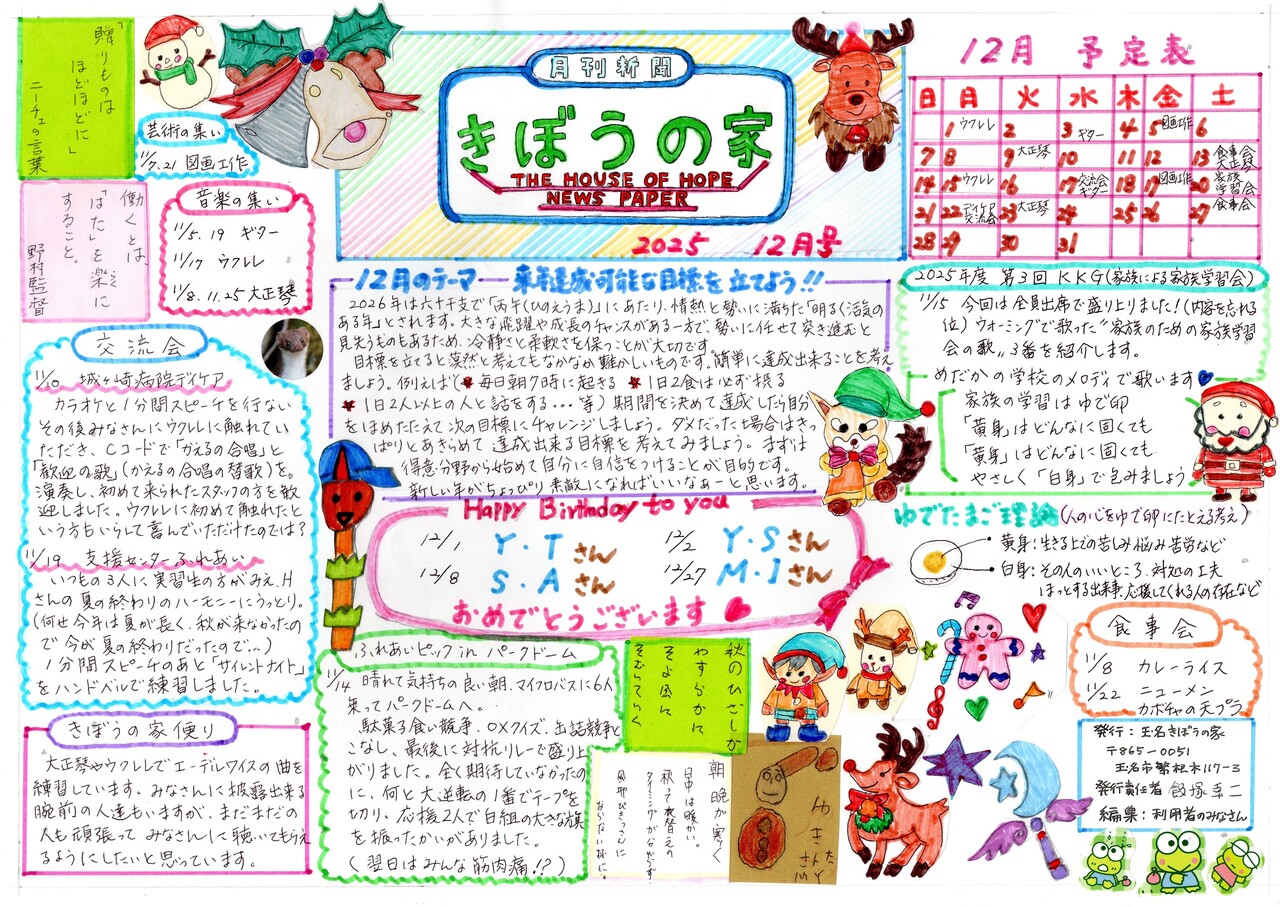 「贈りものは
ほどほどに」
ニーチェの言葉
芸術の集い
11/7.21 図画工作
働くとは、
「はた」を楽に
すること。
野村監督
音楽の集い
11/5.19 ギター
11/17 ウクレレ
11/8.11.25 大正琴
月刊新聞
きぼうの家
THE HOUSE OF HOPE
NEWS PAPER
2025 12月号
12月 予定表
日 月 火 水 木 金 土
1 ウクレレ 2 3 ギター 4 5 図画工作 6
7 8 9 大正琴 10 11 12 13 食事会 大正琴
14 15 ウクレレ 16 17 交流会 ギター 18 19 図画工作 20 家族学習会
21 22 デイケア交流会 23 大正琴 24 25 26 27 食事会
28 29 30 31
12月のテーマ 来年達成可能な目標を立てよう!!
2026年は六十干支で「丙午(ひのえうま)」にあたり、情熱と勢いに満ちた「明るく活気の
ある年」とされます。大きな飛躍や成長のチャンスがある一方で、勢いに任せて突き進むと
見失うものもあるため、冷静さと柔軟さを保つことが大切です。
目標を立てると漠然と考えてもなかなか難かしいものです。簡単に達成出来ることを考え
ましょう。例えば(毎日朝7時に起きる 1日2食は必ず摂る
1日2人以上の人と話をする…等)期間を決めて達成したら自分
をほめたたえて次の目標にチャレンジしましょう。ダメだった場合はきっ
ぱりとあきらめて達成出来る目標を考えてみましょう。まずは
得意分野から始めて自分に自信をつけることが目的です。
新しい年がちょっぴり素敵になればいいなぁーと思います。
2025年度 第3回 KKG(家族による家族学習会)
11/15 今回は全員出席で盛り上りました!(内容を忘れる
位)ウォーミングで歌った"家族のための家族学習
会の歌"3番を紹介します。
めだかの学校のメロディで歌います
家族の学習はゆで卵
「黄身」はどんなに固くても
「黄身」はどんなに固くても
やさしく「白身」で包みましょう
ゆでたまご理論(人の心をゆで卵にたとえる考え)
黄身:生きる上での苦しみ悩み苦労など
白身:その人のいいところ、対処の工夫
ほっとする出来事、応援してくれる人の存在など
交流会
11/10 城ヶ崎病院デイケア
カラオケと1分間スピーチを行ない
その後みなさんにウクレレに触れてい
ただき、Cコードで「かえるの合唱」と
「歓迎の歌」(かえるの合唱の替歌)を。
演奏し、初めて来られたスタッフの方を歓
迎しました。ウクレレに初めて触れたと
いう方もいらして喜んでいただけたのでは?
11/19 支援センターふれあい
いつもの3人に実習生の方がみえ、H
さんの夏の終わりのハーモニーにうっとり。
(何せ今年は夏が長く、秋が来なかったの
で今が夏の終わりだったので…)
1分間スピーチのあと「サイレントナイト」
をハンドベルで練習しました。
Happy Birthday to you
12/1 Y・Tさん 12/2 Y・Sさん
12/8 S・Aさん 12/27 M・Iさん
おめでとうございます
きぼうの家便り
大正琴やウクレレでエーデルワイスの曲を
練習しています。みなさんに披露出来る
腕前の人達もいますが、まだまだの
人も頑張ってみなさんに聴いてもらえ
るようにしたいと思っています。
ふれあいピック in パークドーム
11/14 晴れて気持ちの良い朝、マイクロバスに6人
乗ってパークドームへ。
駄菓子食い競争、○×クイズ、缶詰競争と
こなし、最後に対抗リレーで盛り上
がりました。全く期待していなかったの
に、何と大逆転の1番でテープを
切り、応援2人で白組の大きな旗
を振ったかいがありました。
(翌日はみんな筋肉痛!?)
秋のひざしが
わずかに
そよ風に
そむらてらく
朝晩が寒く
日中は暖かい。
秋って衣替えの
タイミングがむずかしい
風邪ひきさんに
ならない様に。
食事会
11/8 カレーライス
11/22 ニューメン
カボチャの天プラ
発行:玉名きぼうの家
〒865-0051
玉名市繁根木117-3
発行責任者 飯塚幸二
編集:利用者のみなさん